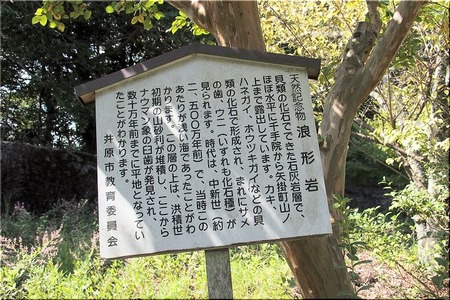 天然記念物 浪形岩
貝類の化石でできた石灰岩層で、
ほぼ水平に千手院から矢掛町山ノ
上まで露出しています。カキ、
ハネガイ、ホウツキガイなどの貝
類の化石で形成され、まれにサメ
の歯、ウニ(いずれも化石種)が
見られます。時代は、中新世(約
二、五〇〇万年前)で、当時この
あたりが浅い海であったことがわ
かります。この層の上は、洪積世
初期の山砂利が堆積し、ここから
ナウマン象の臼歯が発見され、
数十万年前までに平地となってい
たことがわかります。
井原市教育委員会